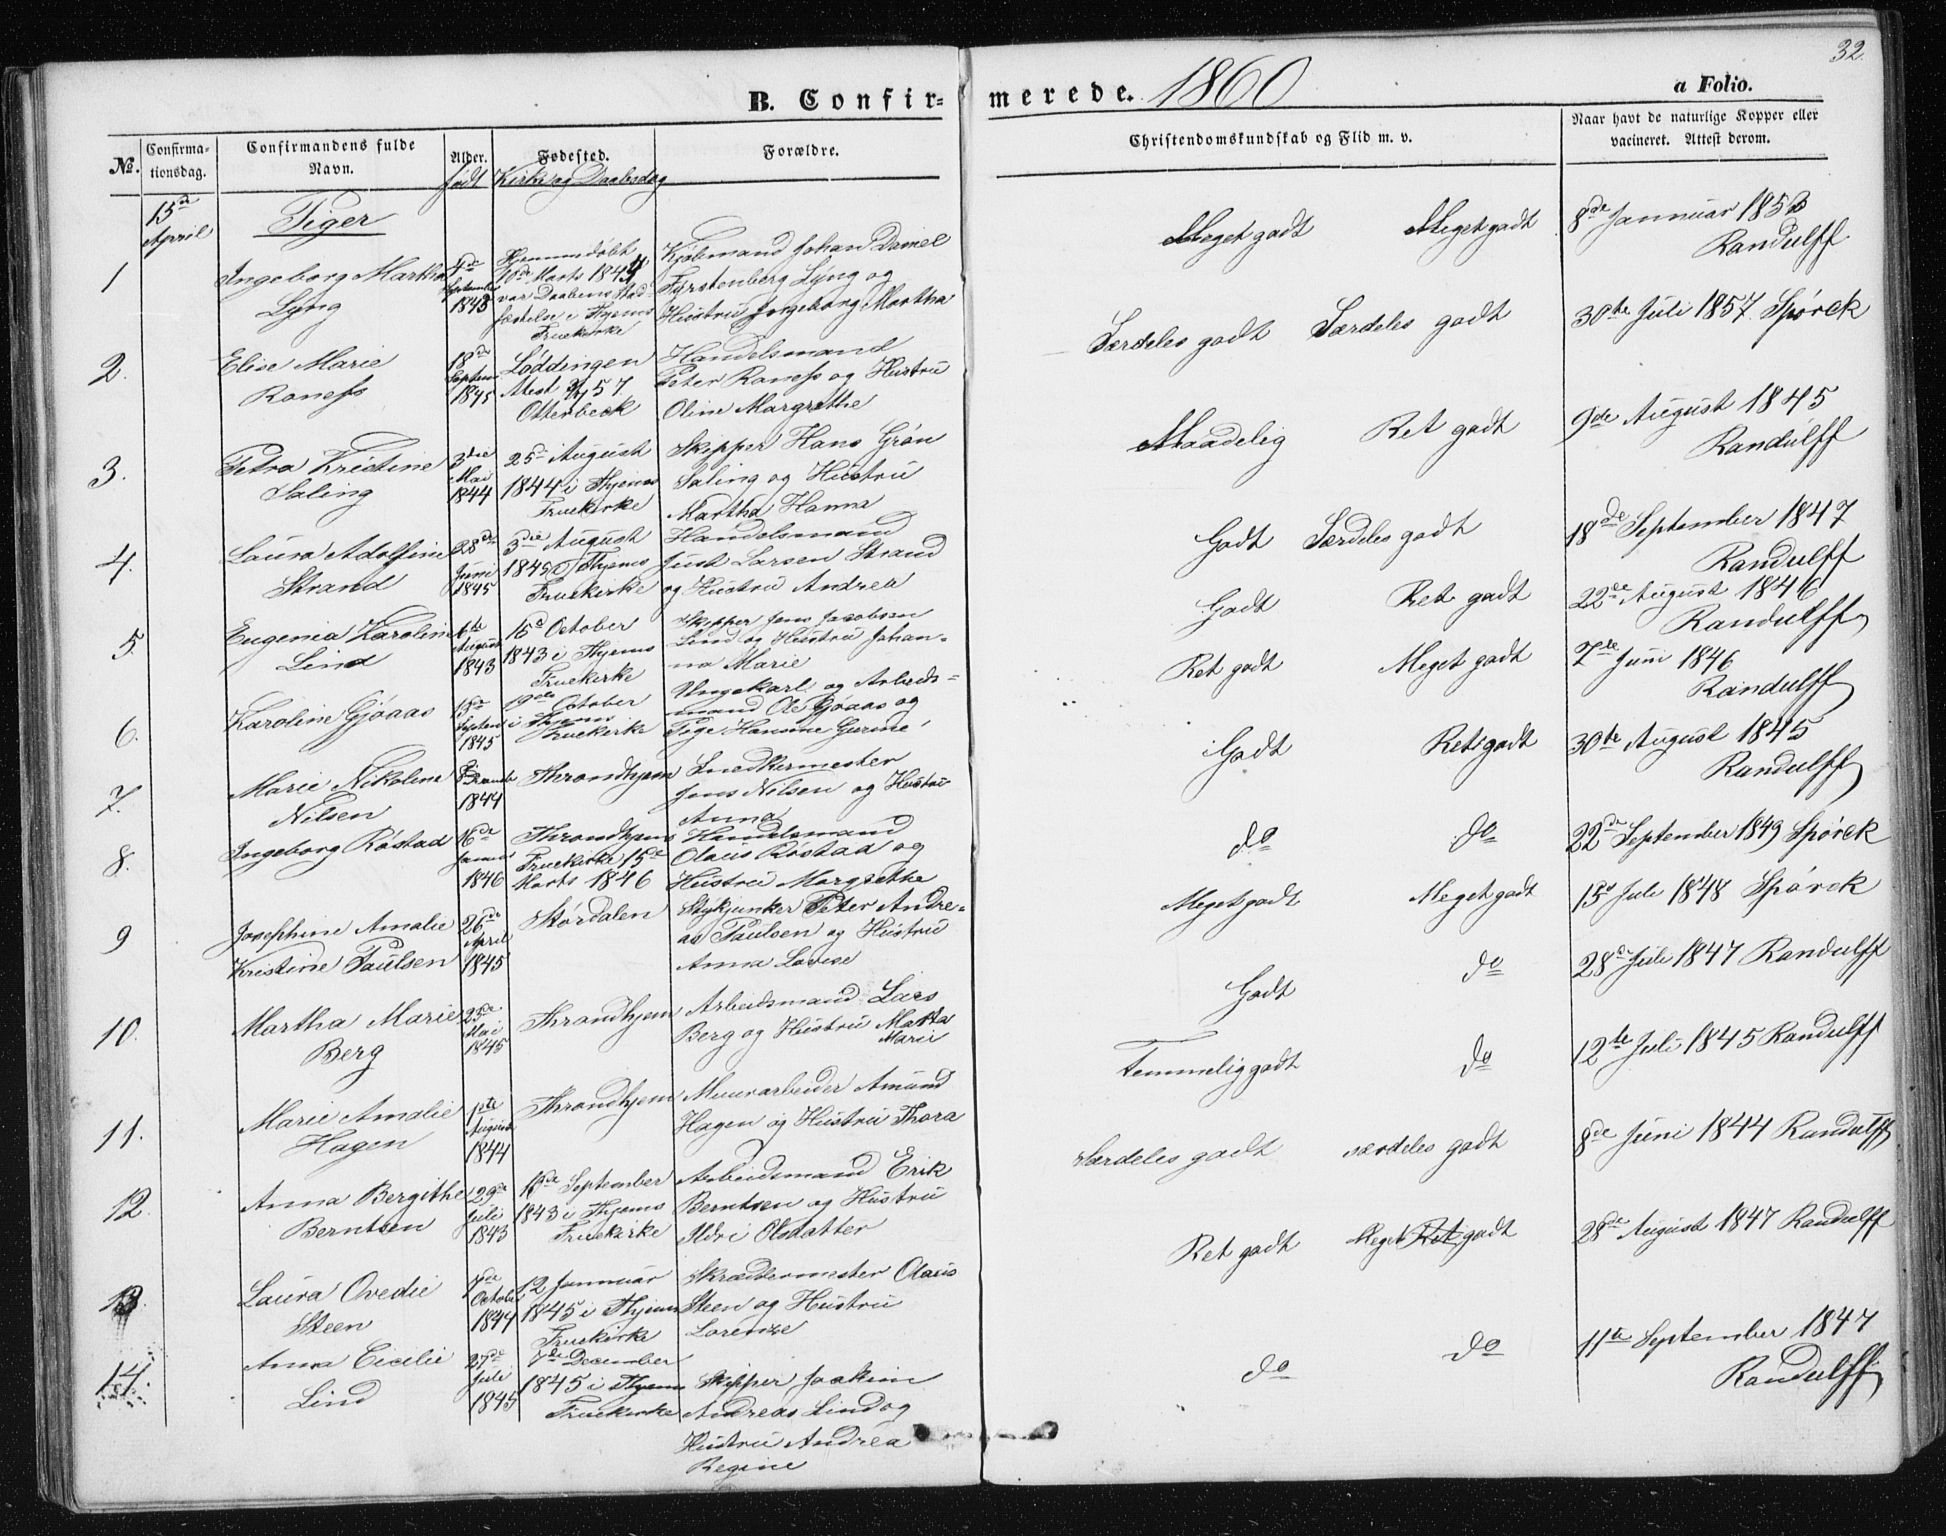 32
B. Confirmerede. 1860
a Folio.
No.
Confirmationsdag.
Confirmandens fulde Navn.
Alder. født
Fødested. Kirke og Daabsdag
Forældre.
Christendomskundskab og Flid m. v.
Naar havt de naturlige Kopper eller vacineret. Attest derom.
15de April
Piger
1
Ingeborg Martha
Lyng
September
1843
Hjemmedøbt
10de Marts 1844
var Daabens Stad-
fæstelse i Thjems
Fruekirke
Kjøbmand Johan Daniel
Fyrstenberg Lyng og
Hustru Ingeborg Martha
Meget godt
Meget godt
8de Januar 1853
Randulff
2.
Elise Marie
Raness
18de
Septem
1845
Løddingen
Attest 57
Otterbeck
Handelsmand
Peter Raness og Hustru
Oline Margrethe
Særdeles godt
Særdeles godt
30te Juli 1857 Spörck
3.
Petra Kristine
Saling
3die
Mai
1844
25de August
1844 i Thjems
Fruekirke
Skipper Hans Grøn
Saling og Hustru
Martha Hanna
Maadelig
Ret godt
9de August 1845
Randulff
4.
Laura Adolfine
Strand
28de
Juni
1845
3die August
1845 i Thjems
Fruekirke
Handelsmand
Just Larsen Strand
og Hustru Andrea
Godt
Særdeles godt
18de September 1847
Randulff
5.
Eugenia Karoline
Lind
6te
August
1843
15de October
1843 i Thjems
Fruekirke
Skipper Jens Jacobsen
Lind og Hustru Johan-
na Marie
Godt
Ret godt
22de August 1846
Randulff
6.
Karoline Gjøaas
15de
Septem
1845
19de October
i Thjems
Fruekirke
Ungekarl og Arbeids-
mand Ole Gjøaas og
Pige Hansine Gurine
Ret godt
Meget godt
7de Juni 1846
Randulff
7.
Marie Nikoline
Nilsen
1844
Throndhjem
Snedkermester
Jens Nilsen og Hustru
Anna
Godt
Ret godt
30te August 1845
Randulff
8.
Ingeborg Røstad
16de
Januar
1846
Throndhjems
Fruekirke 15de
Marts 1846
Handelsmand
Olaus Røstad og
Hustru Margrethe
do
do
22de September 1849 Spörck
9
Josephine Amalie
Kristine Paulsen
26de
April
1845
Størdalen
Stykjunker Peter Andre-
as Paulsen og Hustru
Anna Lovise
Meget godt
Meget godt
15de Juli 1848 Spörck
10.
Martha Marie
Berg
23de
Mai
1845
Throndhjem
Arbeidsmand Lars
Berg og Hustru Marta
Marie
Godt
do
28de Juli 1847 Randulff
11.
Marie Amalie
Hagen
1ste
August
1844
Throndhjem
Muurarbeider Amund
Hagen og Hustru Thora
Temmelig godt
do
12te Juli 1845 Randulff
12
Anna Bergithe
Berntsen
29de
Juli
1843
September
1843 i Thjems
Fruekirke
Arbeidsmand Erik
Berntsen og Hustru
Ildri Olsdatter
Særdeles godt
særdeles godt
8de Juni 1844 Randulff
13.
Laura Ovedie
Steen
October
1844
12 Januar
1845 i Thjems
Fruekirke
Skrædermester Olaus
Steen og Hustru
Lorenze
Ret godt
Meget Ret godt
28de August 1847 Randulff
14.
Anna Cicilie
Lind
27de
Juli
1845
7de December
1845 i Thjems
Fruekirke
Skipper Joakim
Andreas Lind og
Hustru Andrea
Regine
do
do
11te September 1847
Randulff